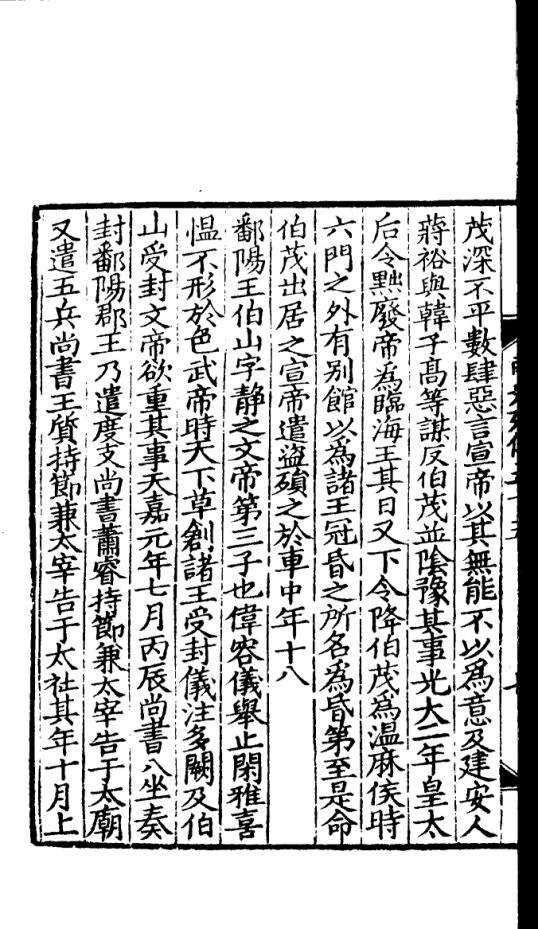 茂深不平數肆惡言宣帝以其無能不以爲意及建安人
蔣裕與韓子髙等謀反伯茂並陰豫其事光大二年皇太
后令黜廢帝為臨海王其日又下令降伯茂爲溫麻侯時
六門之外有别館以爲諸王冠昏之所名爲昏第至是命
伯茂出居之宣帝遣盗殞之於車中年十八
鄱陽王伯山字静之文帝第三子也偉容儀舉止閑雅喜
愠不形於色武帝時天下草創諸王受封儀注多闕及伯
山受封文帝欲重其事天嘉元年七月丙辰尚書八坐奏
封鄱陽郡王乃遣度支尚書蕭睿持節兼太宰告于太廟
又遣五兵尚書王質持節兼太宰告于太社其年十月上